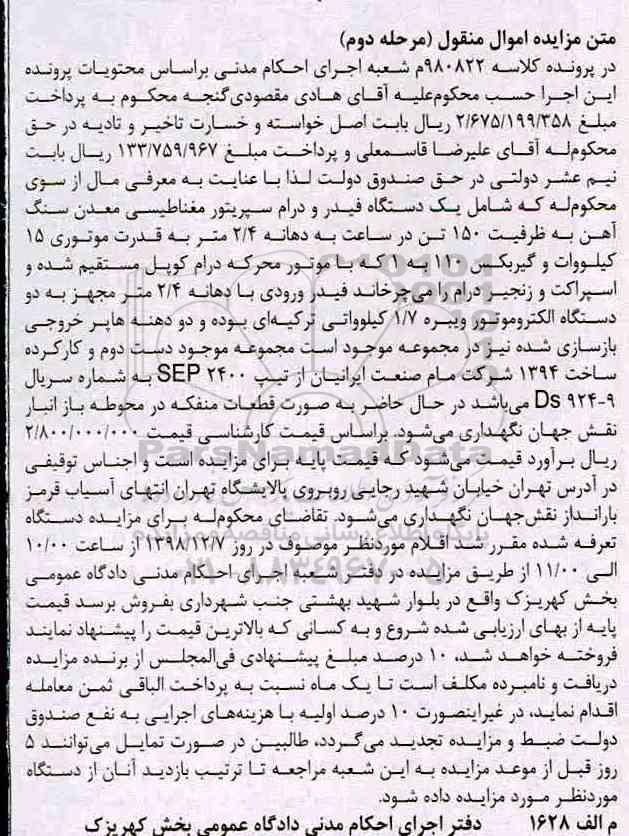 متن مزایده اموال منقول (مرحله دوم)
در پرونده کلاسه ۹۸۰۸۲۲م شعبه اجرای احکام مدنی براساس محتویات پرونده
این اجرا حسب محکوم‌علیه آقای هادی مقصودی‌گنجه محکوم به پرداخت
مبلغ ۲/۶۷۵/۱۹۹/۳۵۸ ریال بابت اصل خواسته و خسارت تاخیر و تادیه در حق
محکوم‌له آقای علیرضا قاسمعلی و پرداخت مبلغ ۱۳۳/۷۵۹/۹۶۷ ریال بابت
نیم عشر دولتی در حق صندوق دولت لذا با عنایت به معرفی مال از سوی
محکوم‌له که شامل یک دستگاه فیدر و درام سپریتور مغناطیسی معدن سنگ
آهن به ظرفیت ۱۵۰ تن در ساعت به دهانه ۲/۴ متر به قدرت موتوری ۱۵
کیلووات و گیربکس ۱۱۰ به ۱ که با موتور محرکه درام کوپل مستقیم شده و
اسپراکت و زنجیر درام را می‌چرخاند فیدر ورودی با دهانه ۲/۴ متر مجهز به دو
دستگاه الکتروموتور ویبره ۱/۷ کیلوواتی ترکیه‌ای بوده و دو دهنه هاپر خروجی
بازسازی شده نیز در مجموعه موجود است مجموعه موجود دست دوم و کارکرده
ساخت ۱۳۹۴ شرکت مام صنعت ایرانیان از تیپ SEP ۲۴۰۰ به شماره سریال
Ds ۹۲۴-۹ می‌باشد در حال حاضر به صورت قطعات منفکه در محوطه باز انبار
نقش جهان نگهداری می‌شود. براساس قیمت کارشناسی قیمت ۲/۸۰۰/۰۰۰/۰۰۰
ریال برآورد قیمت می‌شود که قیمت پایه برای مزایده است و اجناس توقیفی
در آدرس تهران خیابان شهید رجایی روبروی پالایشگاه تهران انتهای آسیاب قرمز
بارانداز نقش‌جهان نگهداری می‌شود. تقاضای محکوم‌له برای مزایده دستگاه
تعرفه شده مقرر شد اقلام موردنظر موصوف در روز ۱۳۹۸/۱۲/۷ از ساعت ۱۰/۰۰
الی ۱۱/۰۰ از طریق مزایده در دفتر شعبه اجرای احکام مدنی دادگاه عمومی
بخش کهریزک واقع در بلوار شهید بهشتی جنب شهرداری بفروش برسد قیمت
پایه از بهای ارزیابی شده شروع و به کسانی که بالاترین قیمت را پیشنهاد نمایند
فروخته خواهد شد، ۱۰ درصد مبلغ پیشنهادی فی‌المجلس از برنده مزایده
دریافت و نامبرده مکلف است تا یک ماه نسبت به پرداخت الباقی ثمن معامله
اقدام نماید، در غیراینصورت ۱۰ درصد اولیه با هزینه‌های اجرایی به نفع صندوق
دولت ضبط و مزایده تجدید می‌گردد، طالبین در صورت تمایل می‌توانند ۵
روز قبل از موعد مزایده به این شعبه مراجعه تا ترتیب بازدید آنان از دستگاه
موردنظر مورد مزایده داده شود.
م الف ۱۶۲۸ دفتر اجرای احکام مدنی دادگاه عمومی بخش کهریزک
ParsNamadData